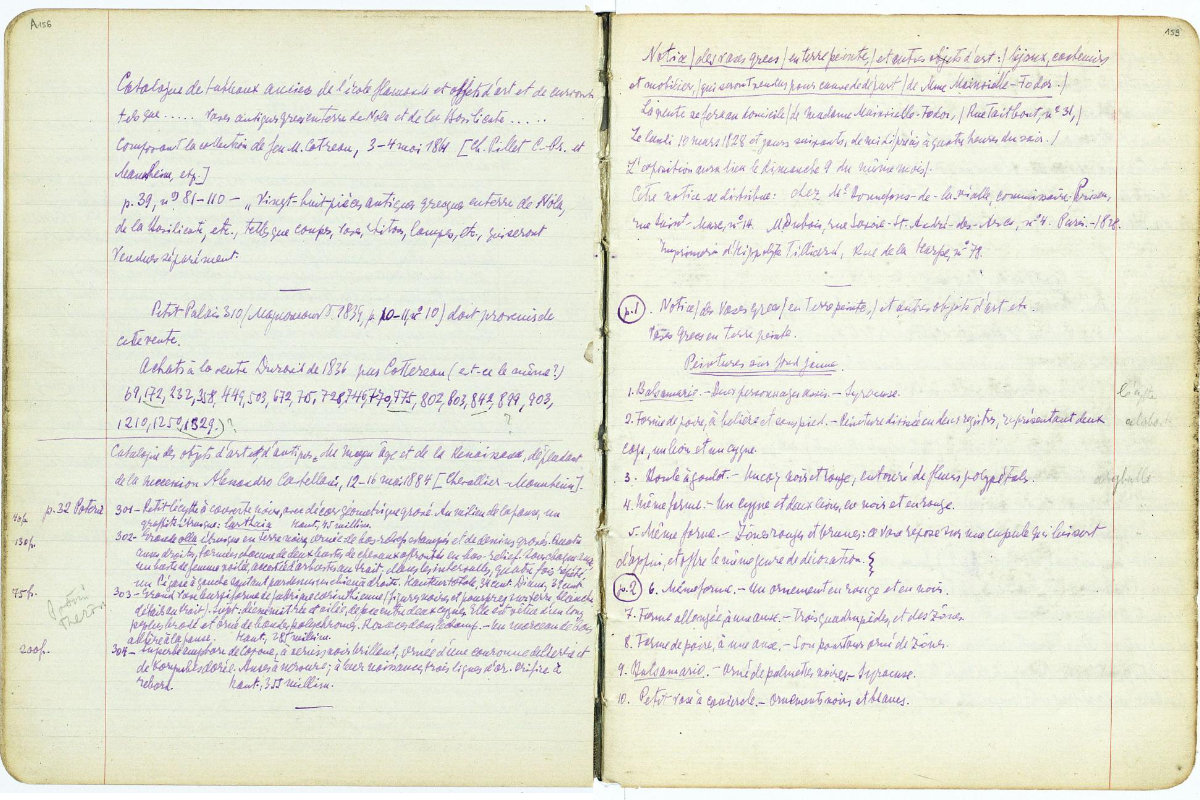 A 156
Catalogue de tableaux anciens de l'école flamande et objets d'art et de curiosité
tels que ..... vases antiques grecs en terre de Nola et de la Basilicate .....
Composant la collection de feu M. Cotreau, 3-4 mai 1861 [Ch. Pillet C.-Pr. et
Mannheim, exp.]
p. 39, nos 81-110 - „Vingt-huit pièces antiques grecques en terre de Nôla,
de la Basilicate, etc., telles que coupes, vases, rhitons, lampes, etc., qui seront
vendues séparément.
Petit Palais 310 (Magnoncourt 1839, p. 10-11, n° 10) doit provenir de
cette vente.
Achats à la vente Durand de 1836 par Cottereau (est-ce le même?)
69, 172, 232, 358, 449, 503, 672, 715, 728, 749, 770, 775, 802, 803, 842, 899, 903,
1210, 1250, 1329.)?
?
Catalogue des objets d'art antiques, du moyen âge et de la Renaissance, dépendant
de la succession Alessandro Castellani, 12-16 mai 1884 [Chevallier - Mannheim].
p. 32 Poterie
40 f. 301 - Petit lécythe à couverte noire, avec décor géométrique gravé. Au milieu de la panse, un
graffite étrusque: larthaia Haut, 45 millim.
130 f. 302 - Grande olla étrusque en terre noire, ornée de bas-reliefs estampés et de dessins gravés.
un buste de femme voilée, dans les intervalles, quatre fois répété,
un Cigare à gauche sautant par dessus un chien à droite. Hauteur totale, 34 cent. Diam., 31 cent.
75 f. 303 - Grand vase de fabrique corinthienne (figures noires et pourpres sur terre blanche
détails au trait). Sujet: déesse mitrée et ailée, debout entre deux cygnes. Elle est vêtue d'un long
péplus brodé et orné de bandes polychromes. Rosaces dans le champ. - Un morceau de bois
adhère à la panse. Haut., 285 millim.
200 f. 304 - Superbe amphore de Capoue, à vernis noir brillant, ornée d'une couronne de lierre et
de korymbes dorés. Anses à nervures; à leur naissance, trois lignes d'or. Orifice à
rebord. Haut., 355 millim.
159
Notice / des vases grecs / en terre peinte, / et autres objets d'art: / bijoux, costumes
et mobilier, / qui seront vendus pour cause de départ / de Mme Mainvielle-Fodor. /
La vente se fera au domicile / de Madame Mainvielle-Fodor, / Rue Taitbout, n° 31, /
Le lundi 10 mars 1828 et jours suivants, de midi précis à quatre heures du soir. /
L'exposition aura lieu le dimanche 9 du même mois /.
Cette notice se distribue: chez Mr Bonnefons-de-Lavialle, commissaire-Priseur,
rue Saint-Marc, n° 14. M. Dubois, rue Savoie-St André-des-Arcs, n° 4. Paris. - 1828.
Imprimerie d'Hippolyte Tilliard, Rue de la Harpe, n° 78.
p. 1. Notice / des Vases Grecs / en Terre peinte, / et autres objets d'art etc
Vases Grecs en terre peinte.
Peintures sur fond jaune.
1. Balsamario. - Deux personnages assis. - Syracuse.
2. Forme de poire, à bélière et sans pied. - Peinture divisée en deux registres, représentant deux
coqs, un lion et un cygne.
3. Boule à goulot. - Un coq noir et rouge, entouré de fleurs polypétales.
4. Même forme. - Un cygne et deux lions, en noir et en rouge.
5. Même forme. - Zônes rouges et brunes: ce vase repose sur une cupule qui lui sert
d'appui, et offre le même genre de décoration.
p. 2 6. Même forme. - Un ornement en rouge et en noir.
7. Forme allongée, à une anse. - Trois quadrupèdes, et des zônes.
8. Forme de poire, à une anse. - Son pourtour orné de zônes.
9. Balsamario. - Orné de palmettes noires. - Syracuse.
10. Petit vase à couvercle. - Ornements noirs et blancs.
aryballe